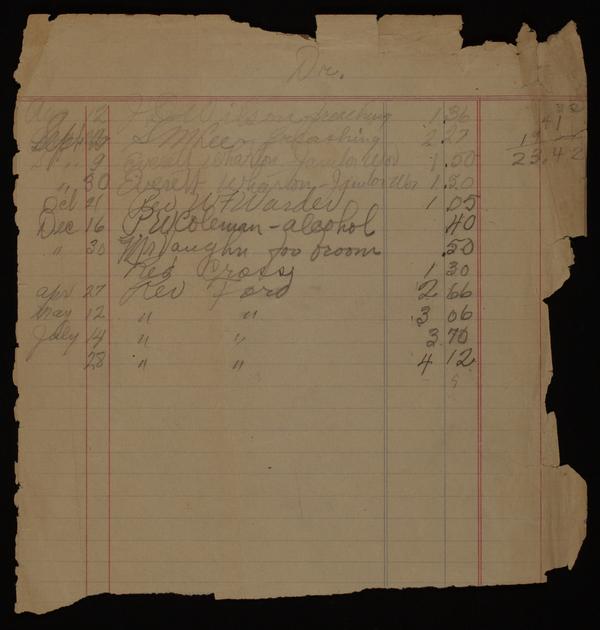 Dr.
Aug 2 Wilson preaching 1.36
Sept preaching 2.27
" " 9 Everett Wharton - Janitor Work 1.00
" 30 Everett Wharton - Janitor Wor 1.50
Oct 21 Rev W F Warder 1.05
Dec 16 P. W Coleman - alcohol .40
" 30 Mr Vaughn for broom .50
Red Cross 1 30
apr 27 Rev Ford 2 66
May 12 " " 3 06
July 14 " " 3 70
28 " " 4 12
23.42